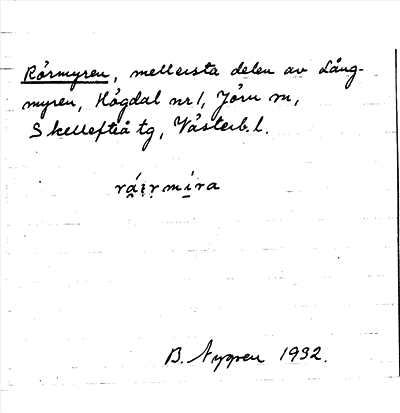 Rörmyren, mellersta delen av Lång-
myren, Högdal nr 1, Jörn sn,
Skellefteå tg, Västerb. l.
B. Nygren 1932.